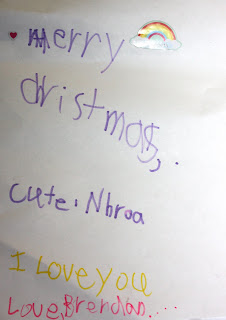 Merry
christmas,.
cute. Nhroa
I Love you
Love, Brendan....